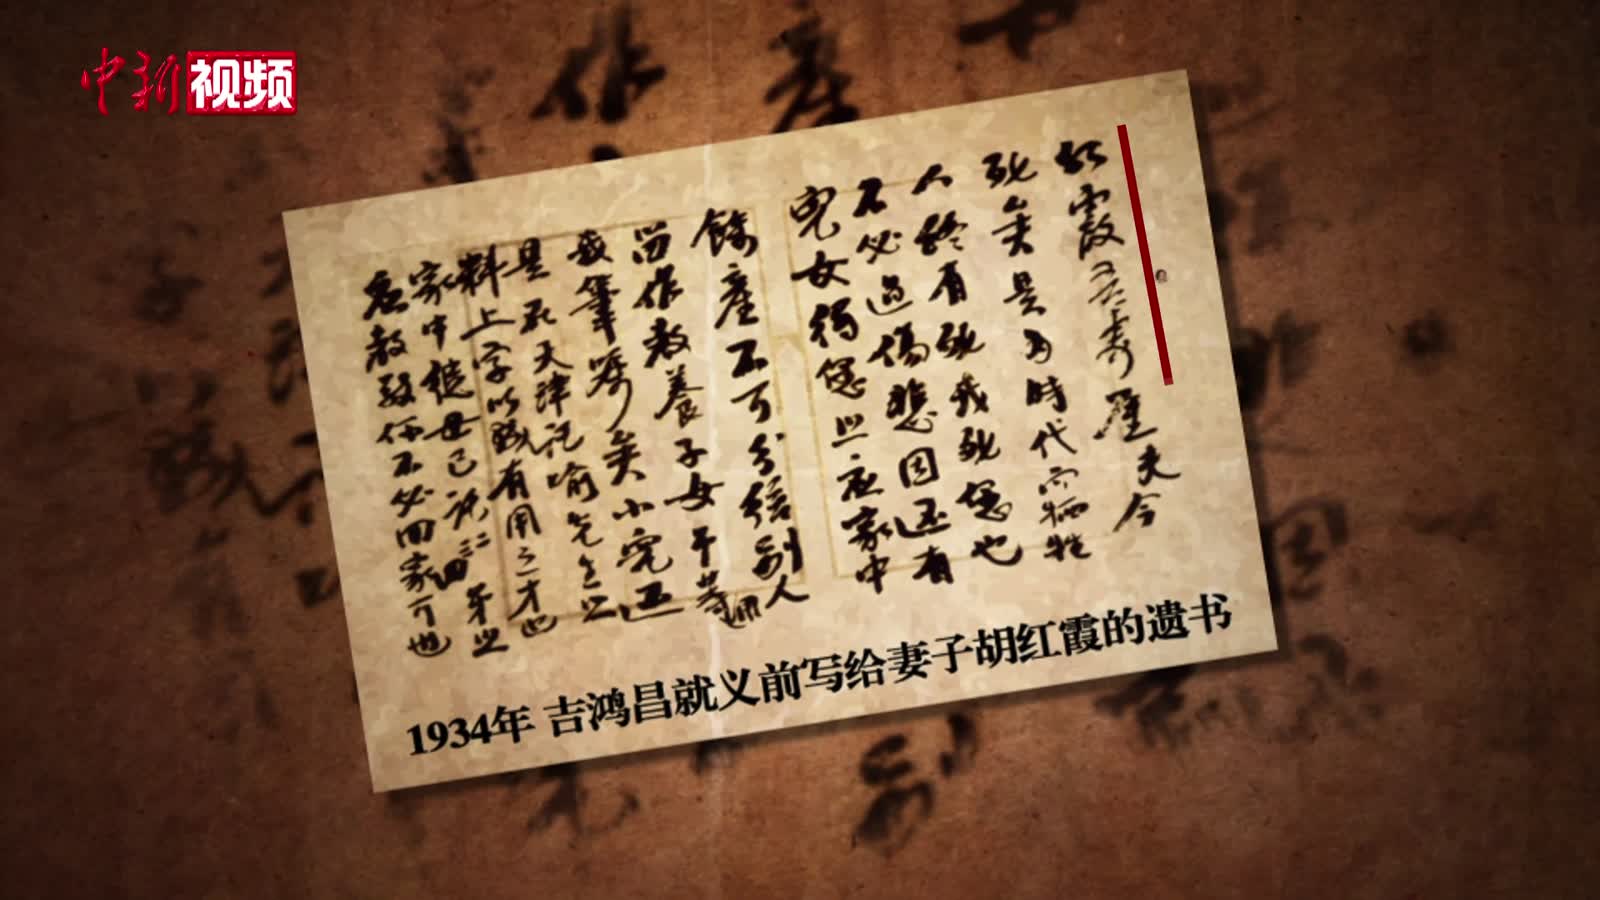 中新视频
红霞吾妻鉴夫今
死矣是为时代而牺牲
人终有死我死您也
不必过伤悲因还有
兒女得您照应家中
餘產不可分给别人
留作教養子女等用
我筆嘱矣小兒还
是在天津託喻先生照
料上学以成有用之才也
家中继母已託二三四弟照
应教敬你不必回家可也
1934年 吉鸿昌就义前写给妻子胡红霞的遗书